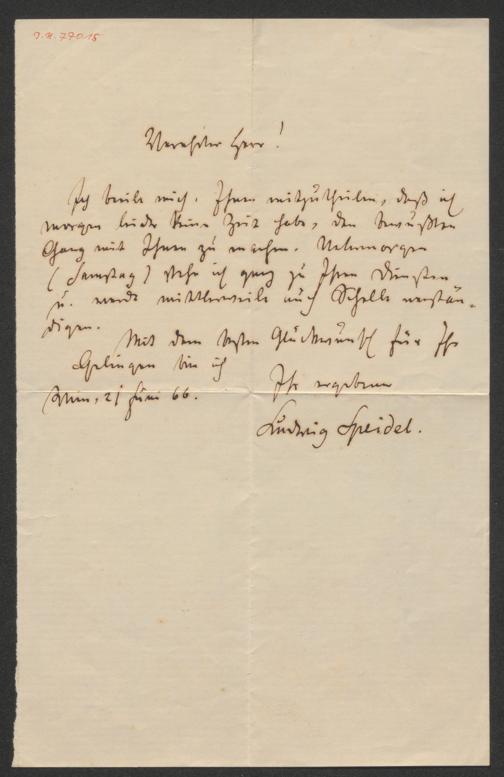 J.N. 77015
Verehrter Herr!
Ich beeile mich, Ihnen mitzutheilen, daß ich
morgen leider keine Zeit habe, den bewußten
Gang mit Ihnen zu machen. Uebermorgen
(Samstag) stehe ich ganz zu Ihren Diensten
u. werde mittlerweile auch Schelle verstän-
digen.
Mit dem besten Glückwunsch für Ihr
Gelingen bin ich
Ihr ergebener
Wien, 21 Juni 66.
Ludwig Speidel.